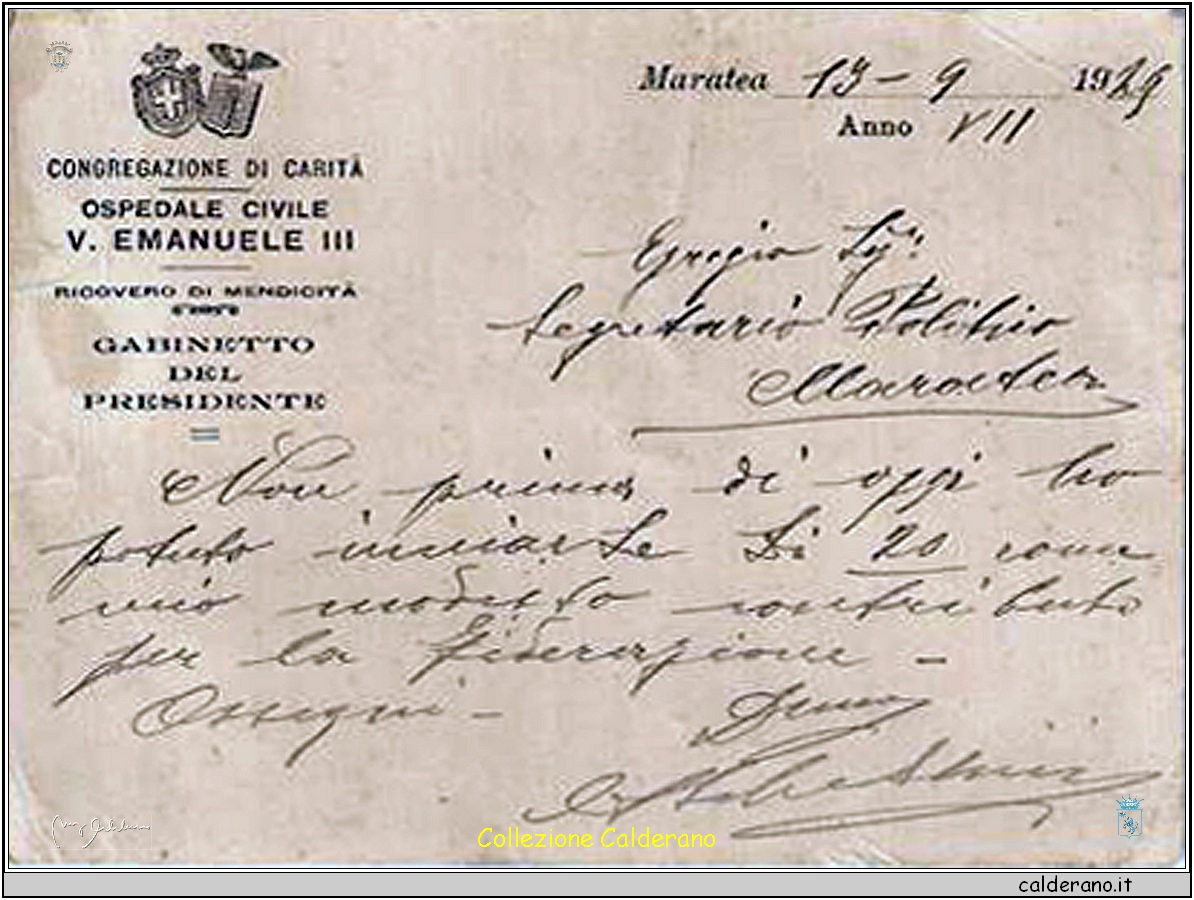 Maratea 13-9 1929
Anno VII
CONGREGAZIONE DI CARITÀ
OSPEDALE CIVILE
V. EMANUELE III
RICOVERO DI MENDICITÀ
GABINETTO
DEL
PRESIDENTE
Egregio Sig:
Segretario Politico
Maratea
Non prima di oggi ho
potuto inviarLe Li 20 come
mio modesto contributo
per la Federazione -
Ossequi -
Collezione Calderano
calderano.it